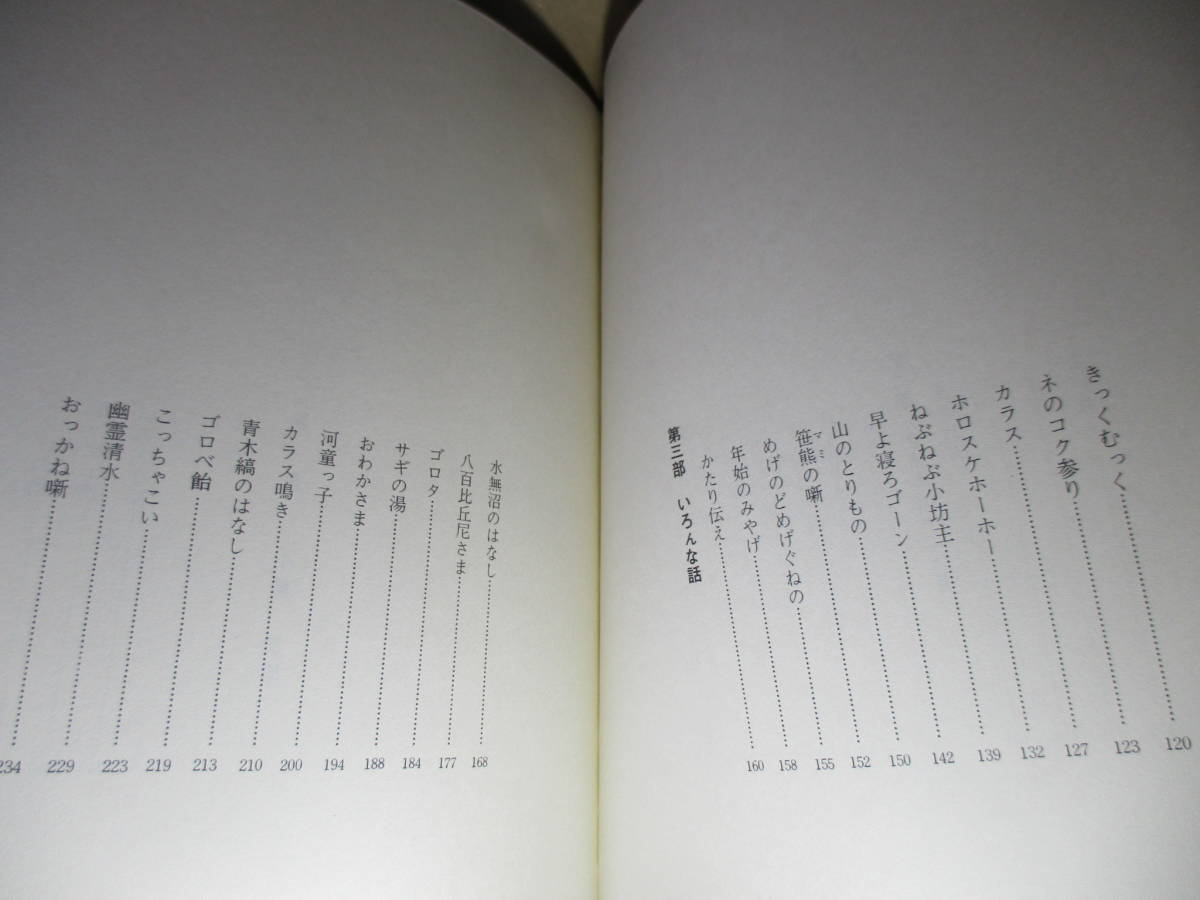 120
きっくむっく 123
ネのコク参り 127
カラス 132
ホロスケホーホー 139
ねぶねぶ小坊主 142
早よ寝ろゴーン 150
山のとりもの 152
笹熊の噺 155
マミ
めげのどめげぐねの
年始のみやげ 158
かたり伝え 160
第三部 いろんな話
水無沼のはなし 168
八百比丘尼さま 177
ゴロタ 184
サギの湯 188
おわかさま 194
河童っ子 200
カラス鳴き 210
青木縞のはなし 213
ゴロベ飴 219
こっちゃこい 223
幽霊清水 229
おっかね噺 234